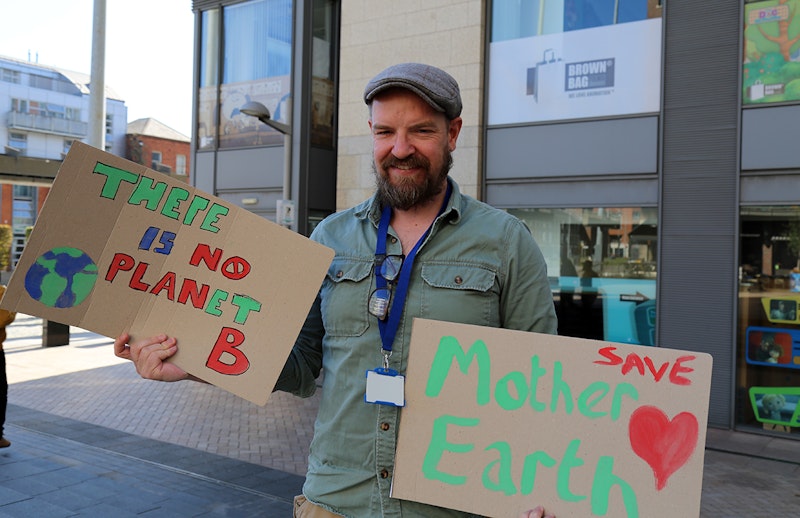 THERE
IS NO
PLANET
B
SAVE
Mother
Earth
BROWN
BAG
WE LOVE ANIMATION